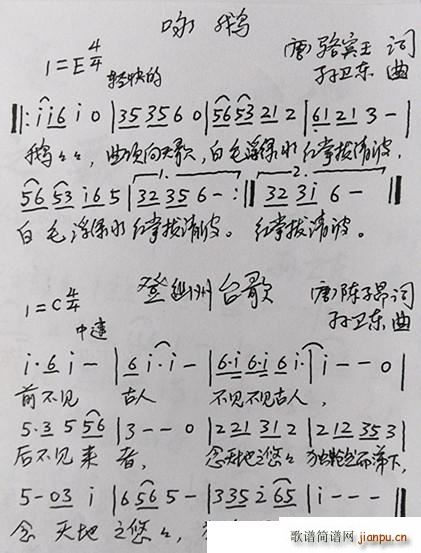 咏 鹅
1=E 4/4
(唐)骆宾王 词
轻快的
孙卫东 曲
‖: i i 6 i 0 | 3 5 3 5 6 0 | 5 6 5 3 2 1 2 | 6 1 2 1 3 - |
鹅々々，曲项向天歌，白毛浮绿水 红掌拨清波，
5 6 5 3 i 6 5 | 1. 3 2 3 5 6 - :‖ 2. 3 2 3 i 6 - ‖
白毛浮绿水 红掌拨清波。 红掌拨清波。
登幽州台歌
1=C 4/4
(唐)陈子昂 词
中速
孙卫东 曲
i · 6 i - | 6 i · i - | 6·i 6·i 6 i · | i - - 0 |
前不见 古人 不见不见古人，
5·3 5 5 6 | 3 - - 0 | 2 2 1 3 1 2 | 2 1 2 3 5 3 |
后不见来 者， 念天地之悠々 独怆然而涕下，
5 - 0 3 i | 6 5 6 5 - | 3 3 5 2 6 5 | i - - - |
念 天地 之悠々，
歌谱简谱网
jianpu.cn